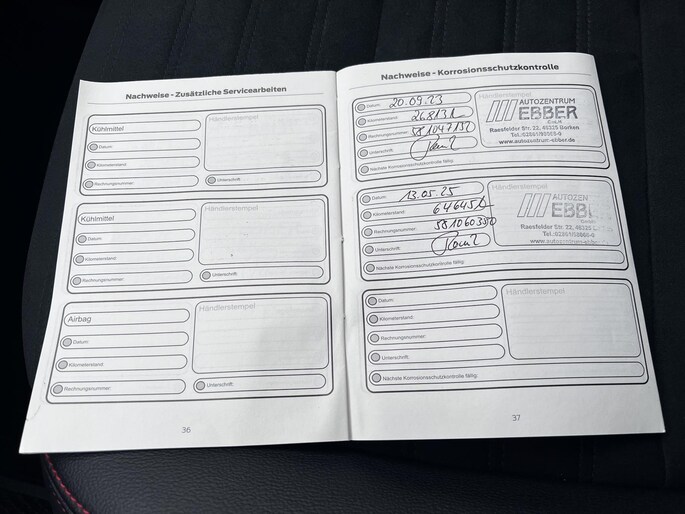 Nachweise - Zusätzliche Servicearbeiten
Kühlmittel
Händlerstempel
Datum:
Kilometerstand:
Rechnungsnummer:
Unterschrift:
Kühlmittel
Händlerstempel
Datum:
Kilometerstand:
Rechnungsnummer:
Unterschrift:
Airbag
Händlerstempel
Datum:
Kilometerstand:
Rechnungsnummer:
Unterschrift:
36
Nachweise - Korrosionsschutzkontrolle
Datum: 20.09.23
Kilometerstand: 26813
Rechnungsnummer: 581047132
Unterschrift:
Nächste Korrosionsschutzkontrolle fällig:
Händlerstempel
AUTOZENTRUM
EBBER
GmbH
Raesfelder Str. 22, 46325 Borken
www.autozentrum-ebber.de
Datum: 13.05.25
Kilometerstand: 64645
Rechnungsnummer: 581060350
Unterschrift:
Nächste Korrosionsschutzkontrolle fällig:
Händlerstempel
AUTOZEN
EBB
Raesfelder Str. 22, 46325
www.autozentrum-ebber
Datum:
Kilometerstand:
Rechnungsnummer:
Unterschrift:
Nächste Korrosionsschutzkontrolle fällig:
Händlerstempel
37